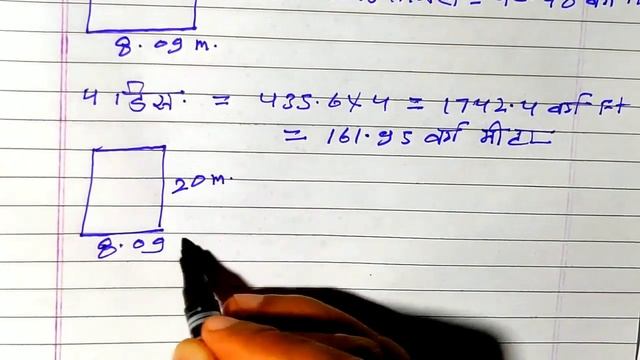 8.09 m.
4 डिस. = 435.6X4 = 1742.4 वर्ग Ft
= 161.95 वर्ग मीटर
20 m.
8.09